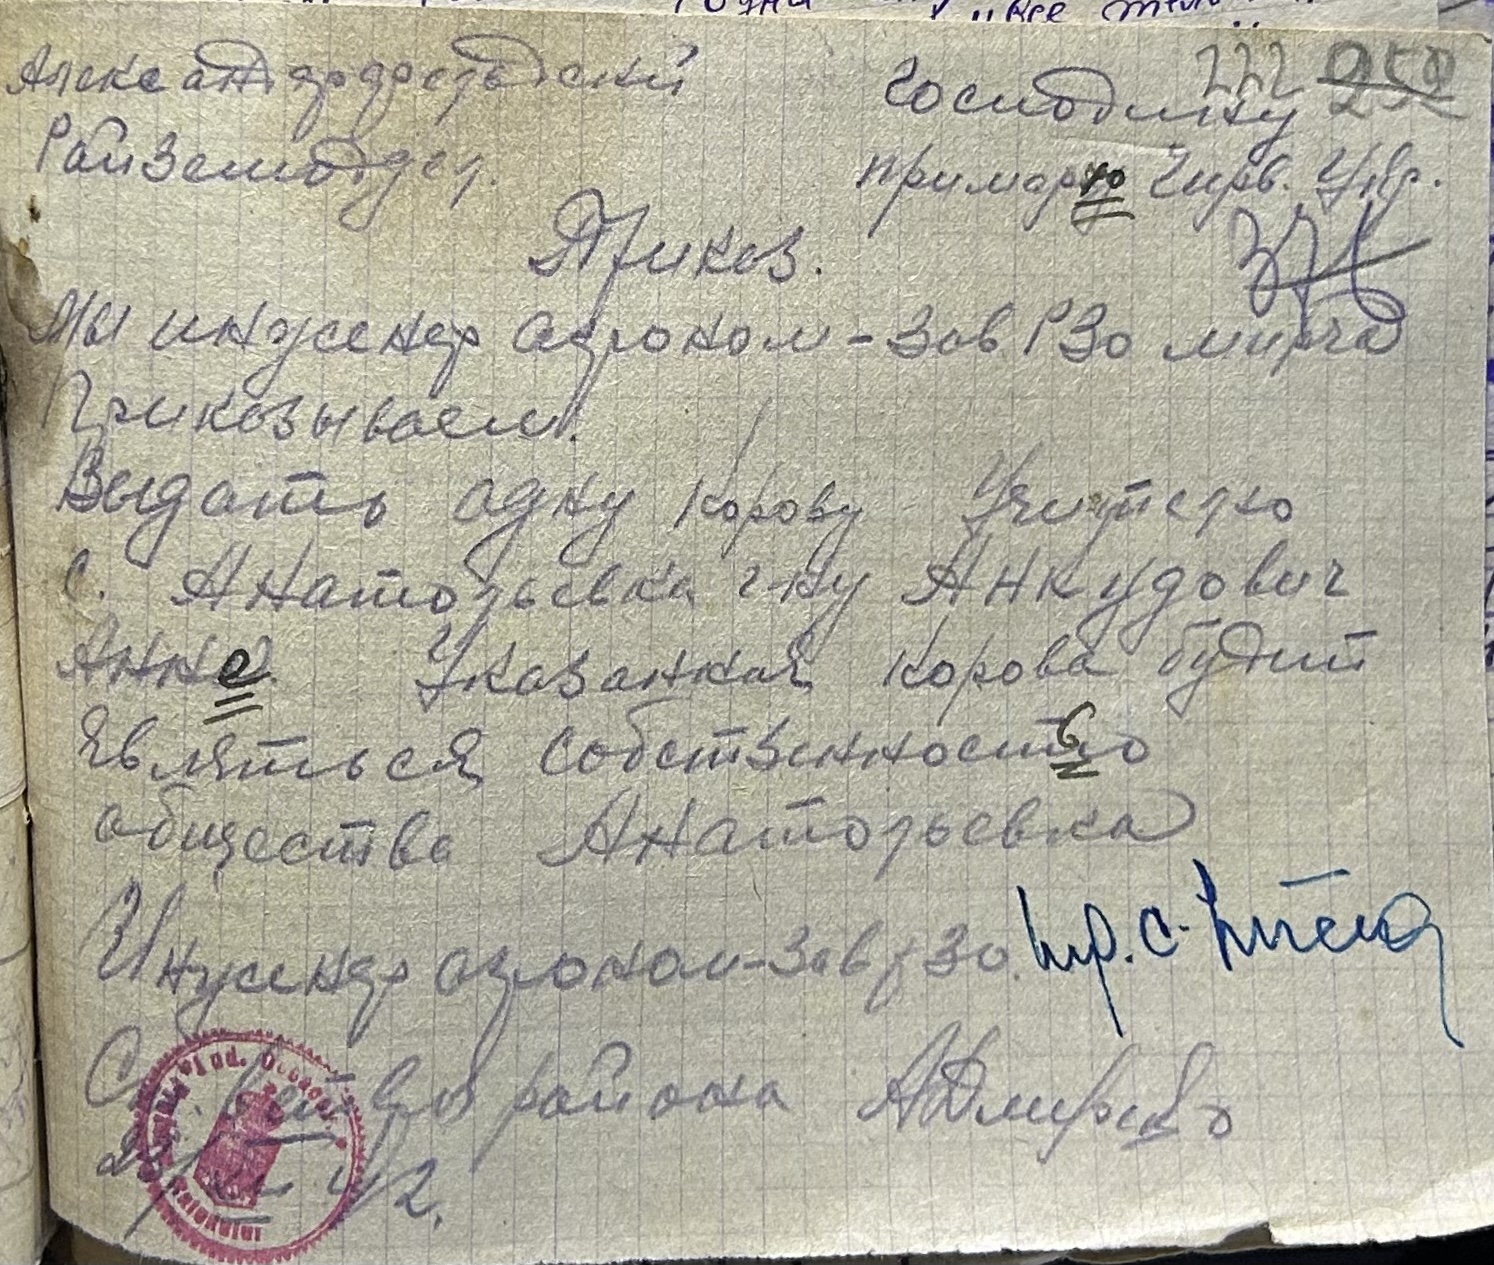 222 252
Александродарский Господину
Райземотдел. примарю Черв. Укр.
Приказ.
Мы инженер агроном-Зав РЗо мирча
Приказываем.
Выдать одну корову Учителю
С. Анатольевка г-ну Анкудович
Анне. Указанная корова будит
Являться собственностью
общества Анатольевка
Инженер агроном-Зав рзо.
Ст. вет. вр. района
42.